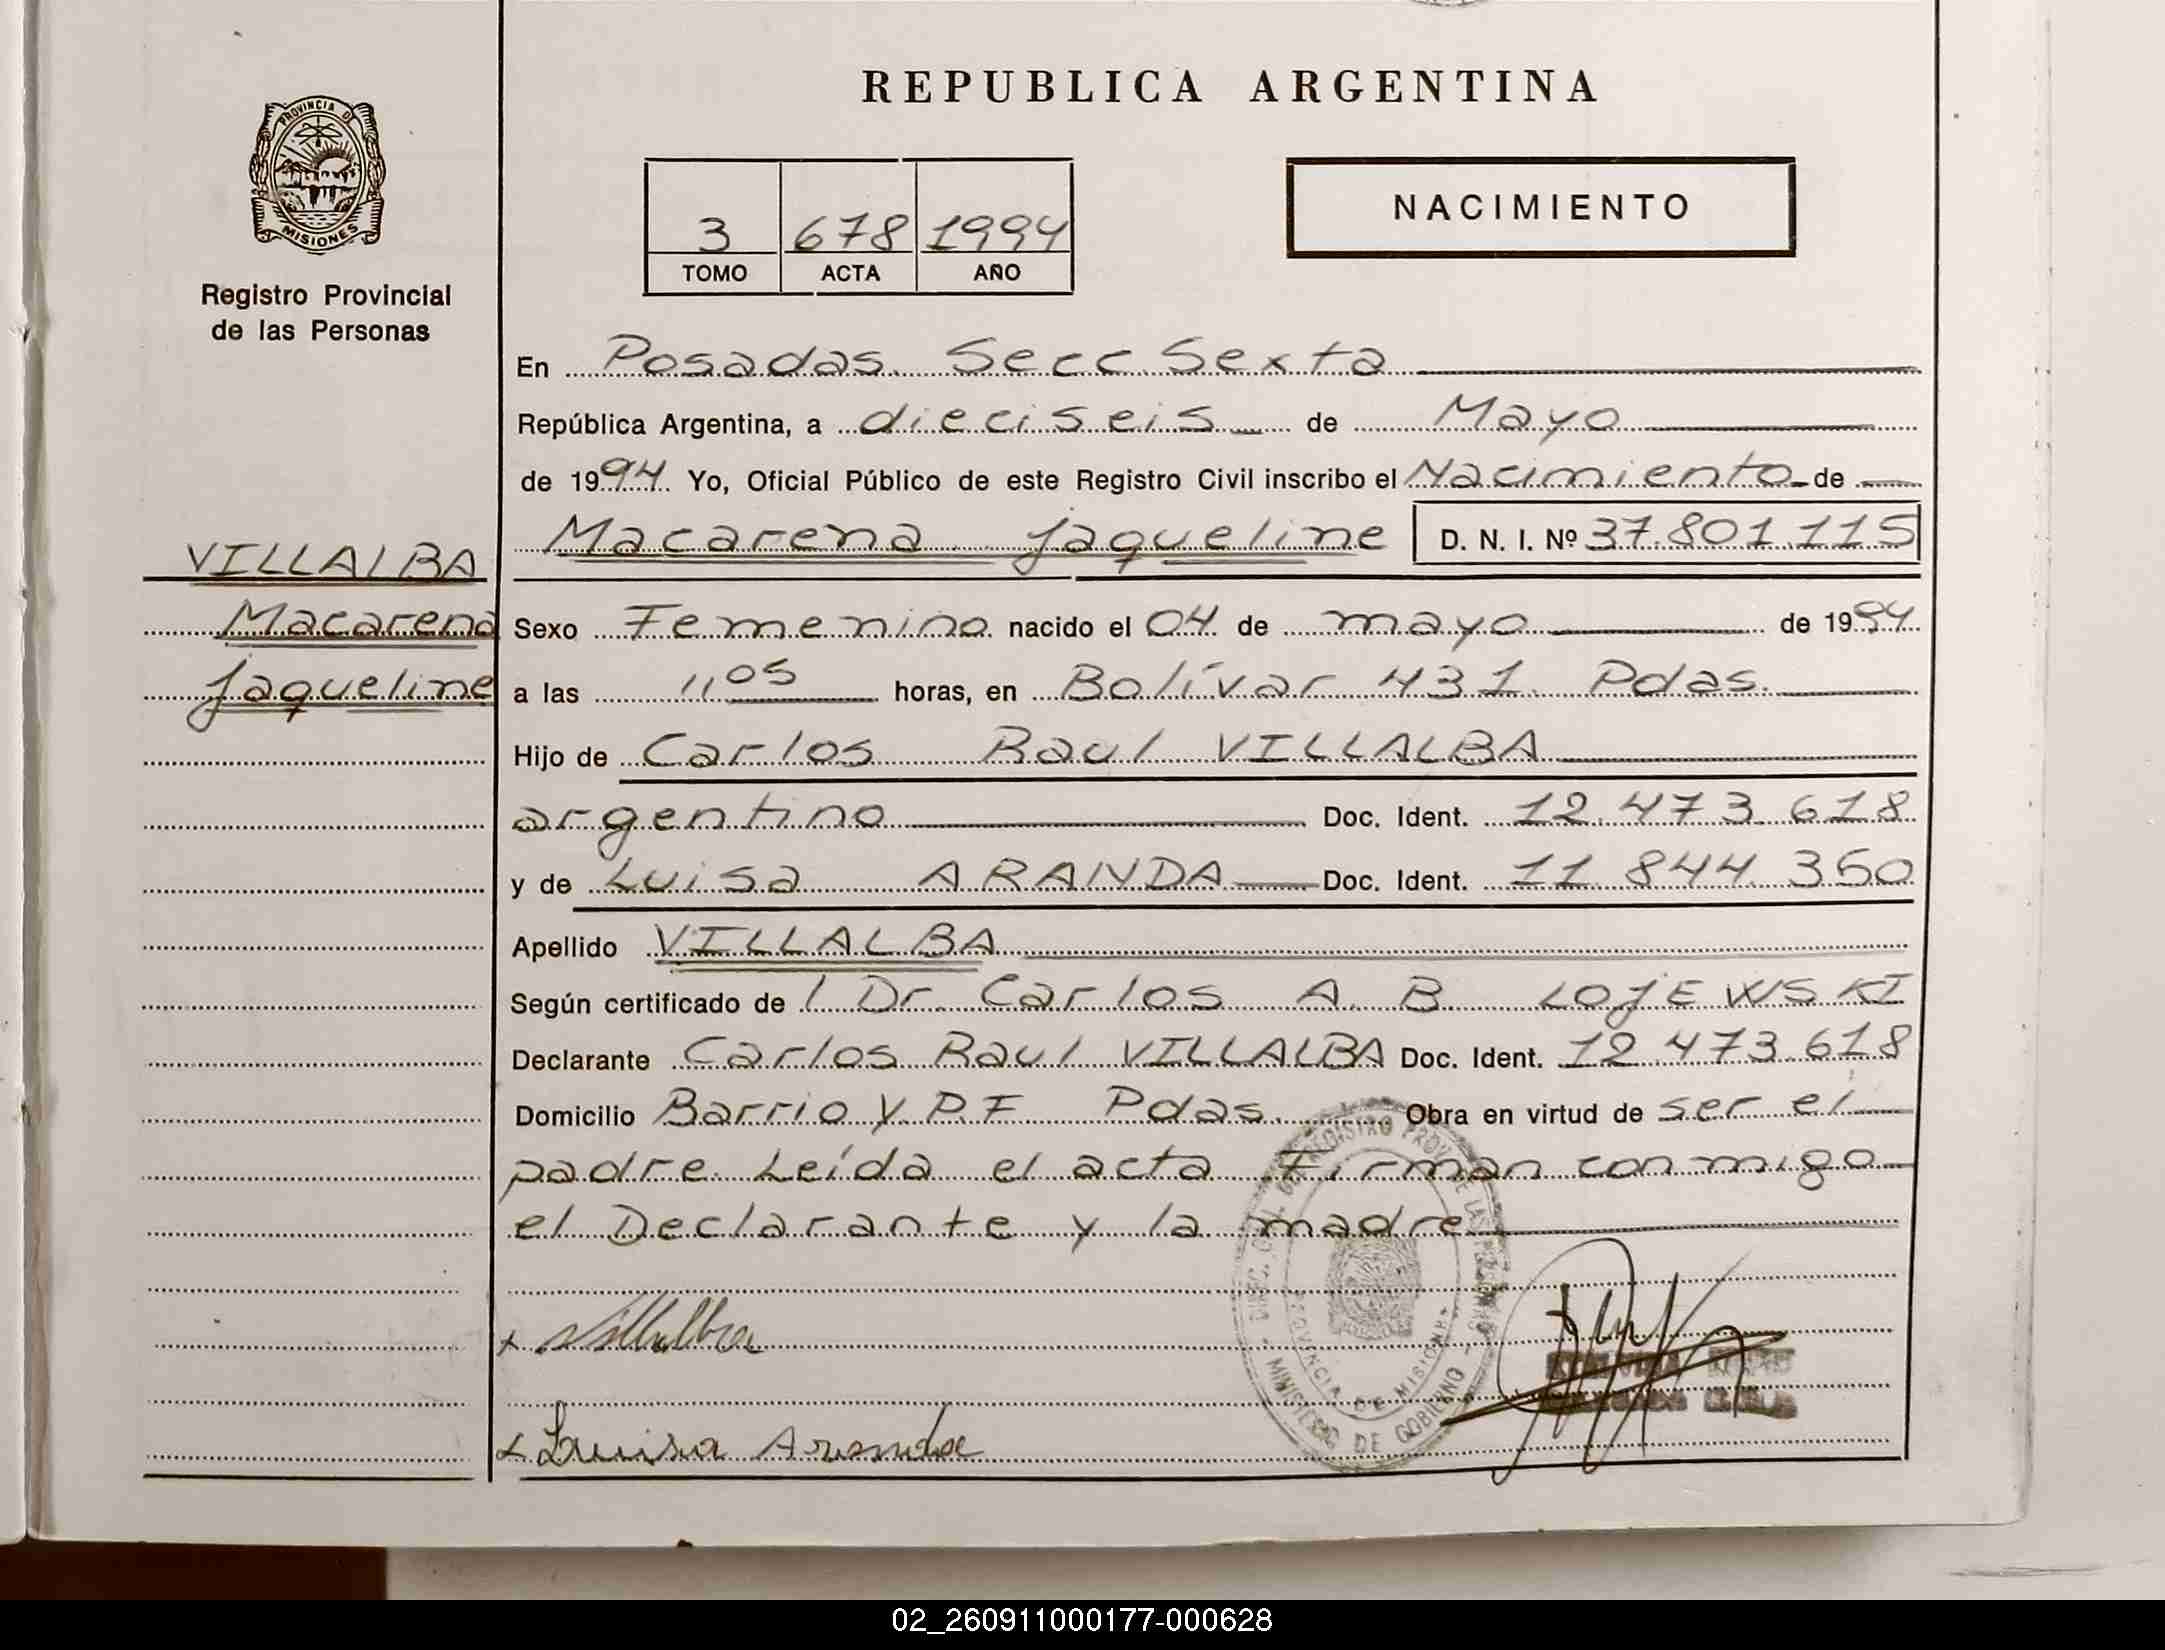 REPUBLICA ARGENTINA
PROVINCIA DE
MISIONES
Registro Provincial
de las Personas
3 678 1994
TOMO ACTA AÑO
NACIMIENTO
En Posadas. Secc. Sexta
República Argentina, a dieciseis de Mayo
de 1994 Yo, Oficial Público de este Registro Civil inscribo el Nacimiento de
Macarena Jaqueline D. N. I. Nº 37.801.115
VILLALBA
Macarena
Jaqueline
Sexo Femenino nacido el 04 de mayo de 1994
a las 11,05 horas, en Bolívar 431. Pdas.
Hijo de Carlos Raul VILLALBA
argentino Doc. Ident. 12.473.618
y de Luisa ARANDA Doc. Ident. 11.844.350
Apellido VILLALBA
Según certificado de l Dr. Carlos A. B. LOJEWSKI
Declarante Carlos Raul VILLALBA Doc. Ident. 12.473.618
Domicilio Barrio Y.P.F. Pdas. Obra en virtud de ser el
padre. Leída el acta Firman conmigo
el Declarante y la madre.
x Villalba
x Luisa Aranda
DIREC. GRAL. DEL REGISTRO PROV. DE LAS PERSONAS
PROVINCIA DE MISIONES
MINISTERIO DE GOBIERNO
02_260911000177-000628